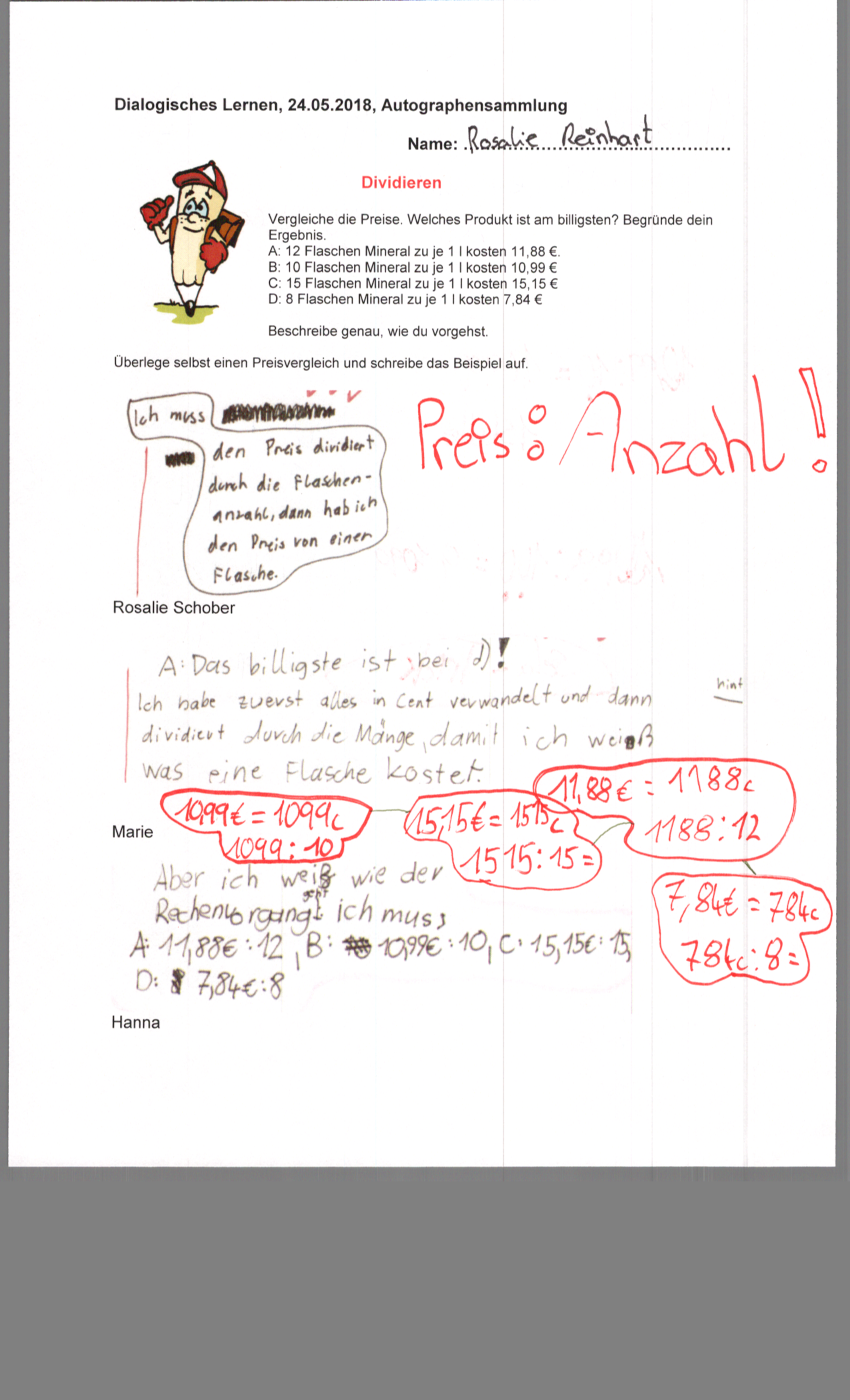 Dialogisches Lernen, 24.05.2018, Autographensammlung
Name: Rosalie Reinhart
Dividieren
Vergleiche die Preise. Welches Produkt ist am billigsten? Begründe dein
Ergebnis.
A: 12 Flaschen Mineral zu je 1 l kosten 11,88 €.
B: 10 Flaschen Mineral zu je 1 l kosten 10,99 €
C: 15 Flaschen Mineral zu je 1 l kosten 15,15 €
D: 8 Flaschen Mineral zu je 1 l kosten 7,84 €
Beschreibe genau, wie du vorgehst.
Überlege selbst einen Preisvergleich und schreibe das Beispiel auf.
Ich muss
den Preis dividiert
durch die Flaschen-
anzahl, dann hab ich
den Preis von einer
Flasche.
Preis : Anzahl!
Rosalie Schober
A: Das billigste ist bei d)!
Ich habe zuerst alles in Cent verwandelt und dann
hint
dividiert durch die Mänge, damit ich weiß
was eine Flasche kostet.
11,88€ = 1188c
1188:12
10,99€ = 1099c
1099:10
15,15€ = 1515c
1515:15=
Marie
7,84€ = 784c
784c:8=
Aber ich weiß wie der
Rechenvorgang geht ich muss
A: 11,88€:12, B: 10,99€:10, C: 15,15€:15,
D: 7,84€:8
Hanna